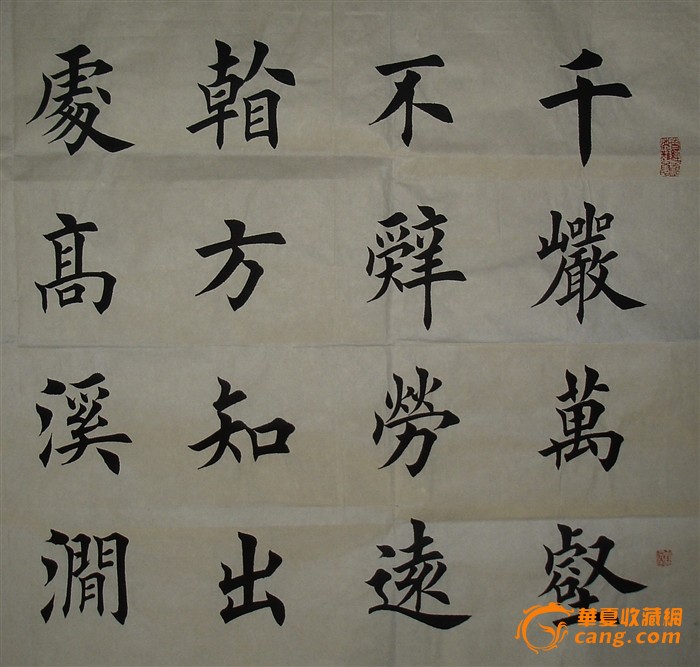 千巖萬壑
不辤勞遠
看方知出
處髙溪澗
華夏收藏網
cang.com